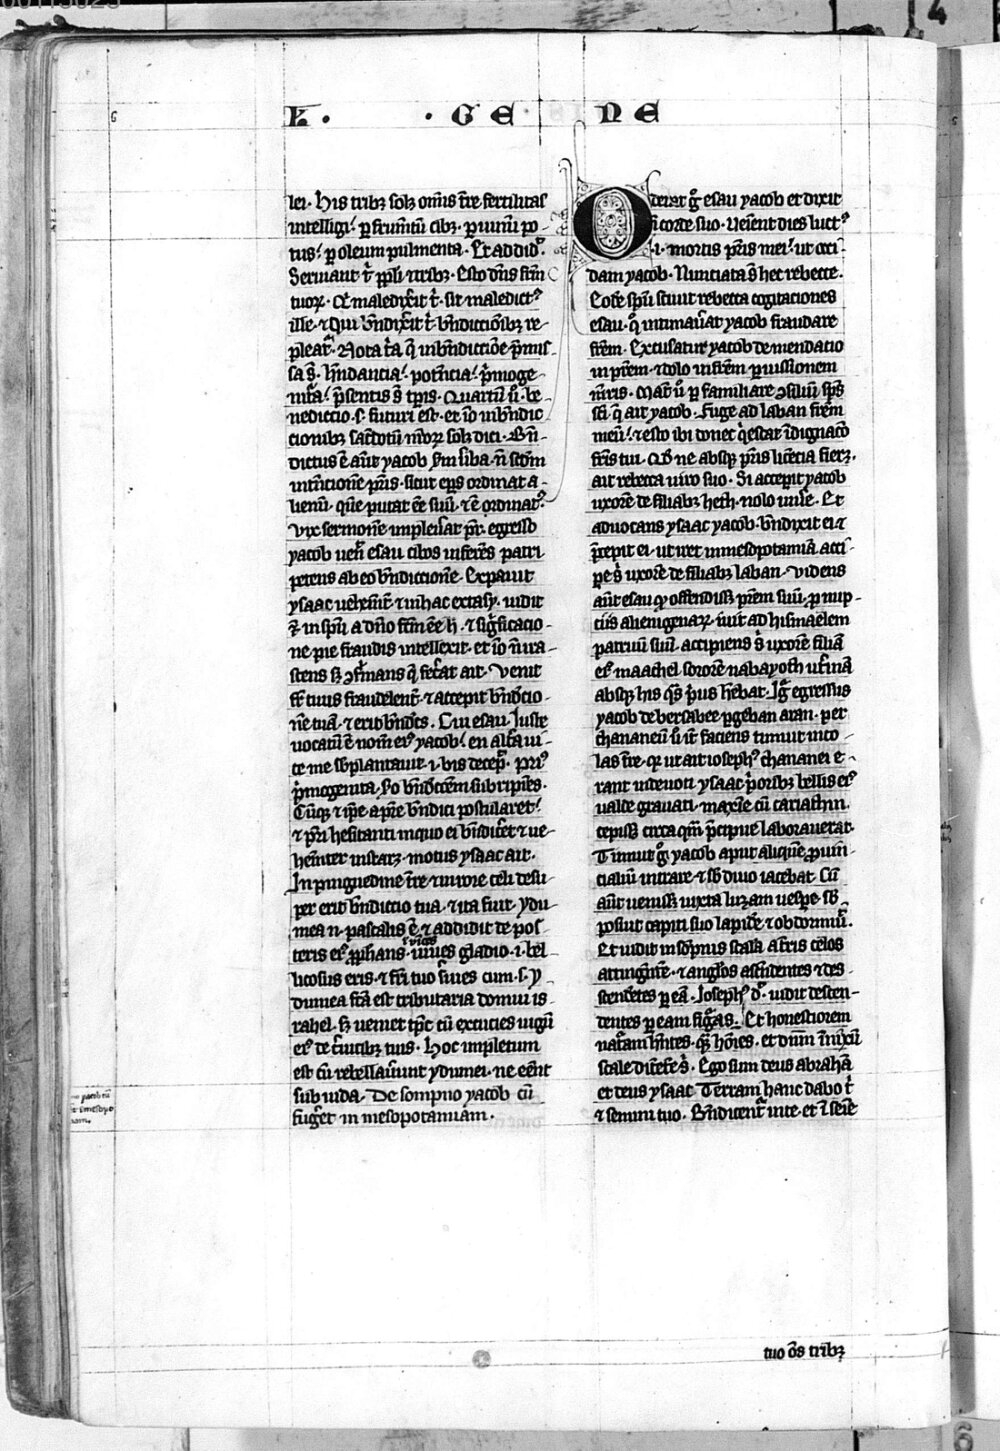 k. · GE NE
lei. His tribꝫ solꝫ omīs t̄re fertilitas
intelligiᷣ. ꝑ frumtū cibꝫ. ꝑ uinū po-
tus. ꝑ oleum pulmenta. Et addidᷣ.
Seruiant t̄ ppl̄i ⁊ tribꝫ. Esto dn̄s frm̄
tuoꝝ. Qͥ maledixᷣit t̄. sit maledictꝰ
ille. ⁊ qui bn̄dixᷣit t̄. bn̄dictōibꝫ re-
pleatᷣ. Nota tͥa q̄ in bn̄dictiōe p̄mis-
sa s̄. habundancia. potencia. pͥmoge-
nita. p̄sentis s̄ tp̄is. Quartū u͛. be-
nedictio. s. futuri est. et iō in bn̄dic-
tionibꝫ sac̄dotū
dictus ē aūt yacob n̄ scdm̄
intn̄cione pr̄is. sicut ep̄s ordinat a-
lienū. quē putat eē suū. ⁊ ē ordinatꝰ.
Vix sermonē impleuᷣat pr̄. egresso
yacob uen̄ esau cibos inferēs patri
petens ab eo bn̄dictionē. Expauit
ysaac uehemt̄. ⁊ in hac extasy. uidit
⁊ in sp̄u a dn̄o fc̄m eē h̄. ⁊ sigͥficatio-
ne pie fraudis intellexit. et iō n̄ ira-
scens sꝫ ɔfirmans q̄ fecᷣat ait. Venit
fr̄ tuus fraudelent̄. ⁊ accepit bn̄dictio-
nē tuā. ⁊ erit bn̄dc̄s. Cui esau. Iuste
uocatū ē nom̄ eiꝰ yacob. en alt̄a ui-
ce me sb̄plantauit. i. bis decepᷣ. priꝰ
pͥmogenita. sō bn̄dictōem subripiēs.
Cūqꝫ ⁊ ip̄e a pr̄e bn̄dici postularetᷣ.
⁊ pr̄i hesitanti in quo ei bn̄dicᷣet ⁊ ue-
hem̄ter instarꝫ. motus ysaac ait.
In pinguedine t̄re ⁊ in rore celi desu-
per erit bn̄dictio tua. ⁊ ita fuit. ydu-
mea n̄. pascalis ē ⁊ addidit de pos-
teris eiꝰ ꝓphans. uiues gladio. i. bel-
licosus eris. ⁊ fr̄i tuo s̄uies cum. s. y-
dumea fc̄a est tributaria domui is-
rahel. sꝫ ueniet tp̄c cū excucies iugū
eiꝰ de c̄uicibꝫ tuis. Hoc impletum
est cū rebellauᷣunt ydumei. ne eēnt
sub iuda. De sompno yacob cū
fugᷣet in mesopotamiam.
Oderat gͦ esau yacob et dixit
i corde suo. Veient dies luctꝰ
.i. mortis pr̄is mei. ut occi-
dam yacob. Nunciata s̄ hec rebecce.
sp̄u sciuit rebecca cogitaciones
esau. q̄ intimauᷣat yacob fraudare
frēm. Excusatur yacob de mendatio
in pr̄em. ⁊ dolo in frēm ꝑ iussionem
mr̄is. Matᷣ u͛ ꝑ familiare ɔsiliū sp̄s
sc̄i q̄ ait yacob. Fuge ad laban frēm
meū. ⁊ esto ibi donec qͥescat īdignacō
fr̄is tui. Qd̄ ne absqꝫ pr̄is licēcia fierꝫ.
ait rebecca uiro suo. Si acceperit yacob
uxorē de filiabꝫ heth. nolo uiuᷣe. Et
aduocans ysaac yacob. bn̄dixit ei ⁊
p̄cepit ei. ut iret in mesopotamiā acci-
pe s̄ uxorē de filiabꝫ laban. Videns
aūt esau qͦ offendissꝫ pr̄em suū. ꝓ nup-
ciis alienigenaꝝ. iuit ad hismaelem
patruū suū. accipiens s̄ uxorē filiā
eiꝰ maachel sororē nabayoth ut̄inā
absqꝫ his qͣs pͥus hēbat. Igᷣ egressus
yacob de bersabee ꝑgebat aran. per
chananeū si iter faciens timuit inco-
las t̄re. qͥ ut ait iosephꝰ chananei e-
rant indeuoti ysaac pͥoribꝫ bellis eiꝰ
ualde grauati. maxīe cū cariathin.
cepissꝫ circa qm̄ p̄cipue laborauerat.
Timuit gͦ yacob aput aliquē ꝓuin-
cialiū intrare ⁊ sb̄ diuo iacebat. Cū
aūt uenissꝫ iuxta luzam uespe. sb̄-
posuit capiti suo lapidē ⁊ obdormiuᷣ.
Et uidit in sōpnis scalā a t̄ris celos
attingᷣntē. ⁊ angl̄os ascn̄dentes ⁊ des-
cendētes ꝑ eā. Iosephꝰ dᷣ. uidit descen-
dentes ꝑ eam figͥas. Et honestiorem
nat̄am hn̄tes. qͣꝫ hoīes. et dn̄m īnixū
scale dicētē s̄. Ego sum deus abrahā
et deus ysaac. Terram hanc dabo t̄
⁊ semini tuo. Bn̄dicentᷣ in te. et ī seīe
tuo ōs tribꝫ